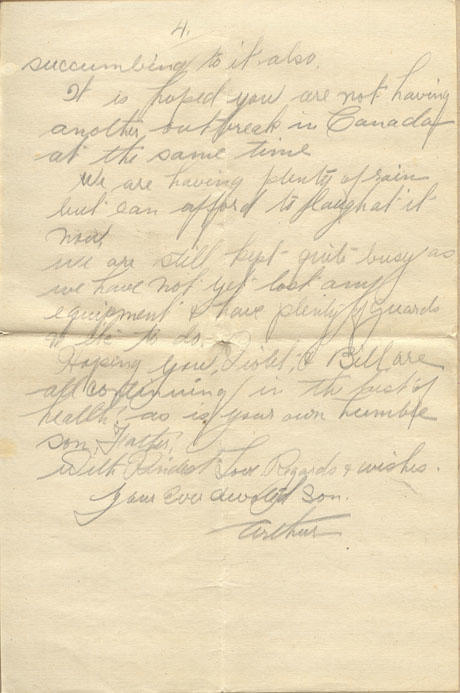 4.
succumbing to it also.
It is hoped you are not having
another outbreak in Canada
at the same time
We are having plenty of rain
but can afford to laugh at it
now.
we are still kept quite busy as
we have not yet lost any
equipment & have plenty of guards
etc to do.
Hoping you, Violet, & Bill, are
all continuing in the best of
health, as is your own humble
son, Father!
With Kindest Love Regards & wishes.
Your Ever devoted Son.
Arthur